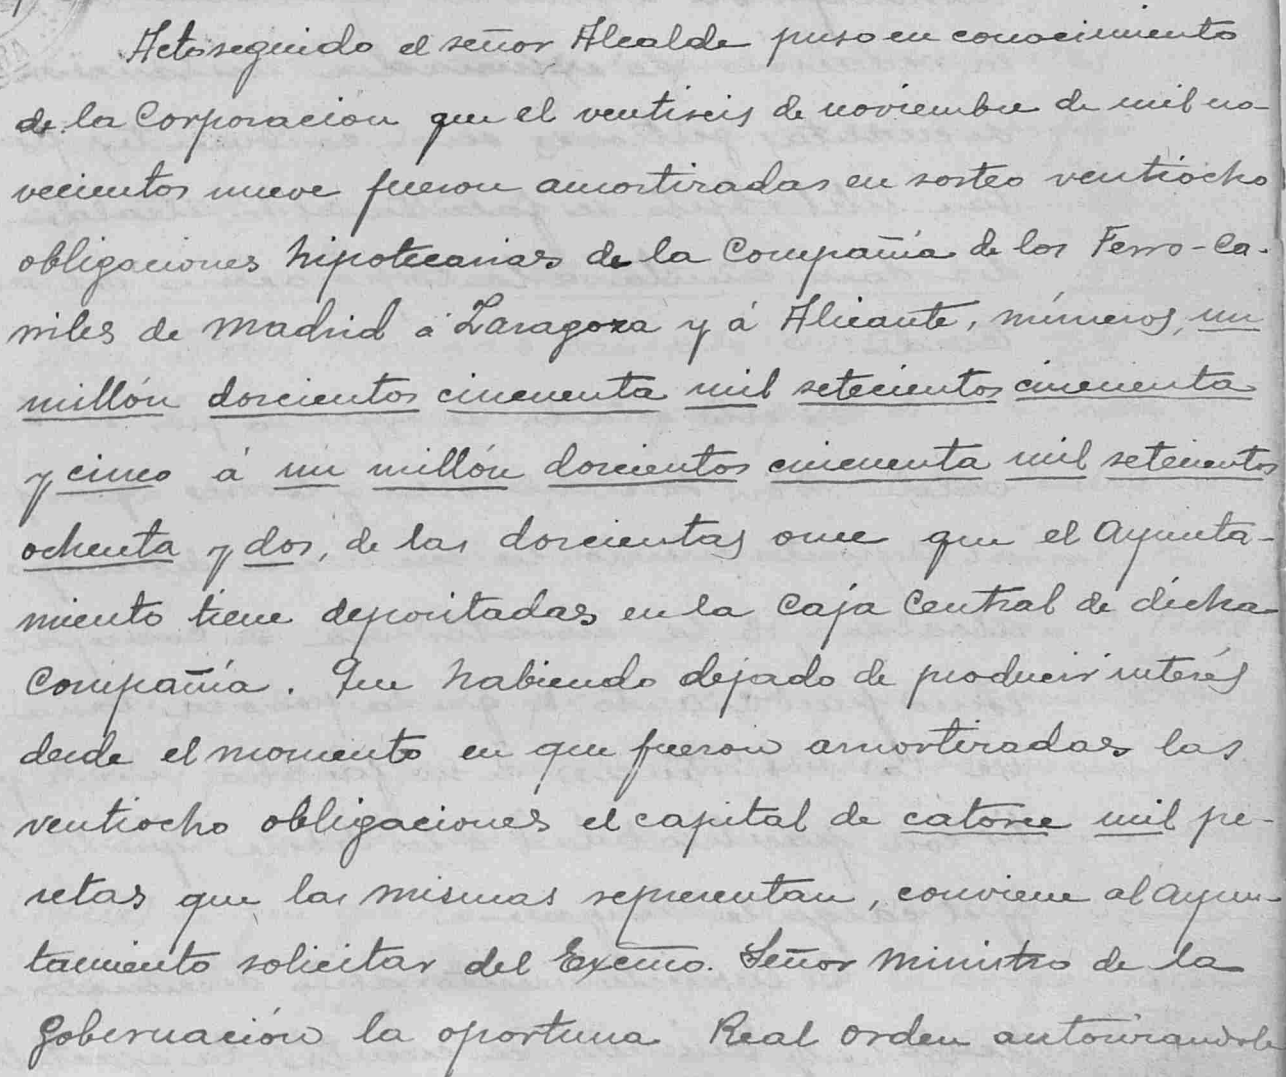 Acto seguido el señor Alcalde puso en conocimiento
de la Corporación que el ventiseis de noviembre de mil no-
vecientos nueve fueron amortizadas en sorteo ventiocho
obligaciones hipotecarias de la Compañía de los Ferro-Ca-
rriles de Madrid á Zaragoza y á Alicante, números, un
millón doscientos cincuenta mil setecientos cincuenta
y cinco á un millón doscientos cincuenta mil setecientos
ochenta y dos, de las doscientas once que el Ayunta-
miento tiene depositadas en la Caja Central de dicha
Compañía. Que habiendo dejado de producir interés
desde el momento en que fueron amortizadas las
ventiocho obligaciones el capital de catorce mil pe-
setas que las mismas representan, conviene al Ayun-
tamiento solicitar del Excmo. Señor Ministro de la
Gobernación la oportuna Real orden autorizandole